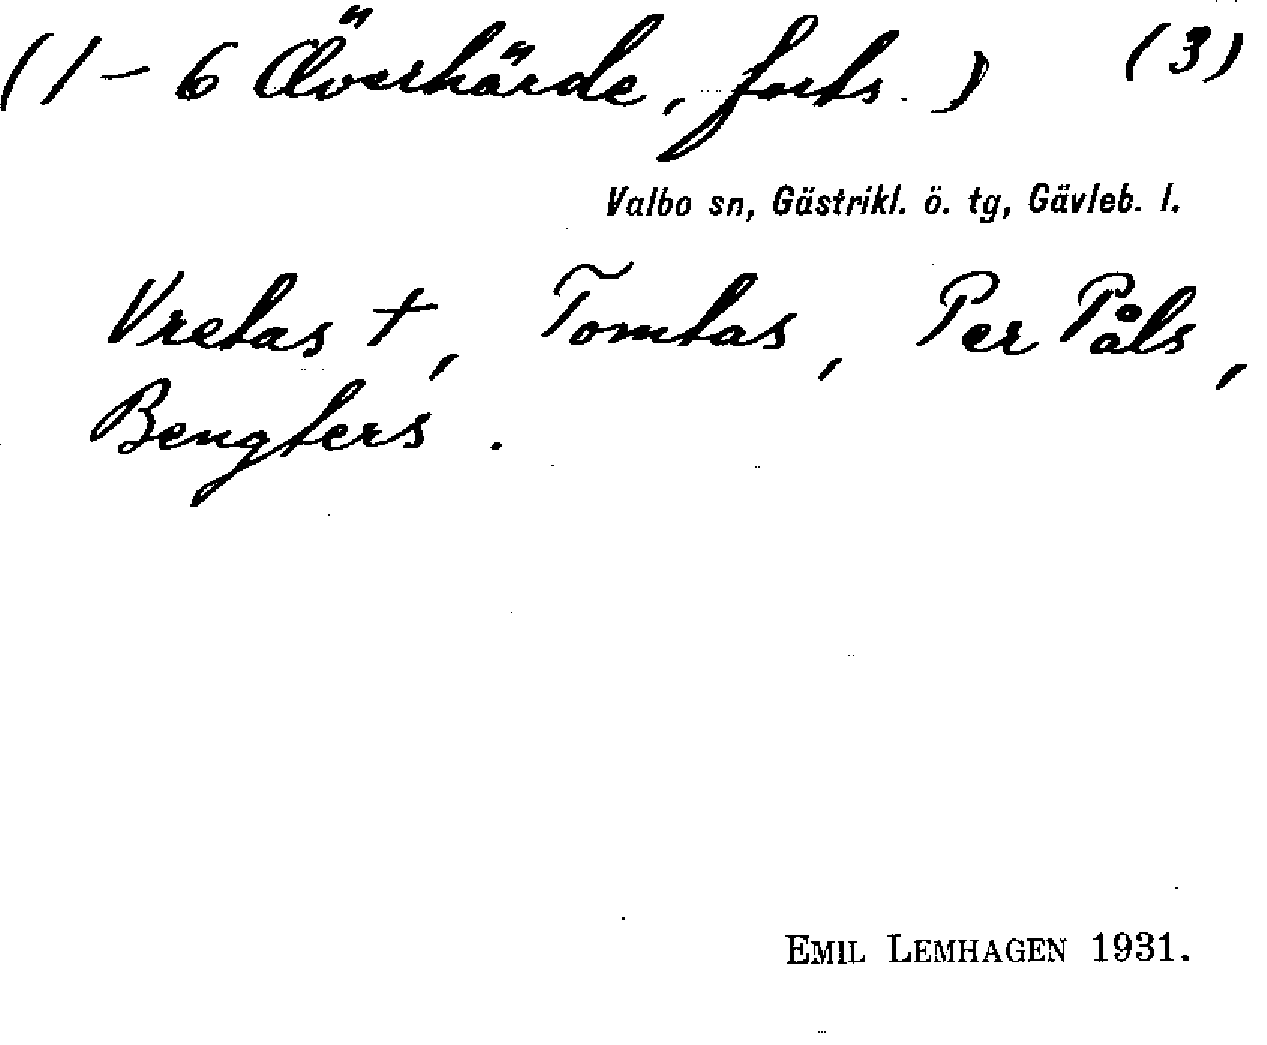 (1-6 Överhärde, forts.) (3)
Valbo sn, Gästrikl. ö. tg, Gävleb. l.
Vretas +, Tomtas, Per Påls,
Bengters.
EMIL LEMHAGEN 1931.